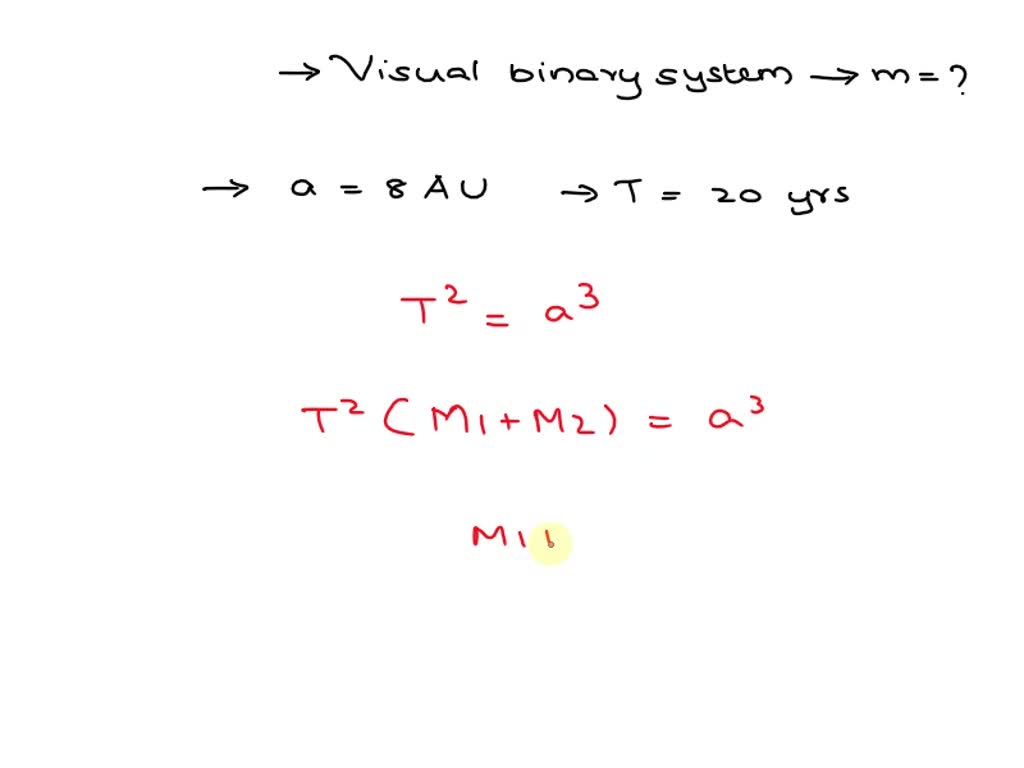 → Visual binary system → m = ?
→ a = 8 AU → T = 20 yrs
T² = a³
T² (M1 + M2) = a³
M1